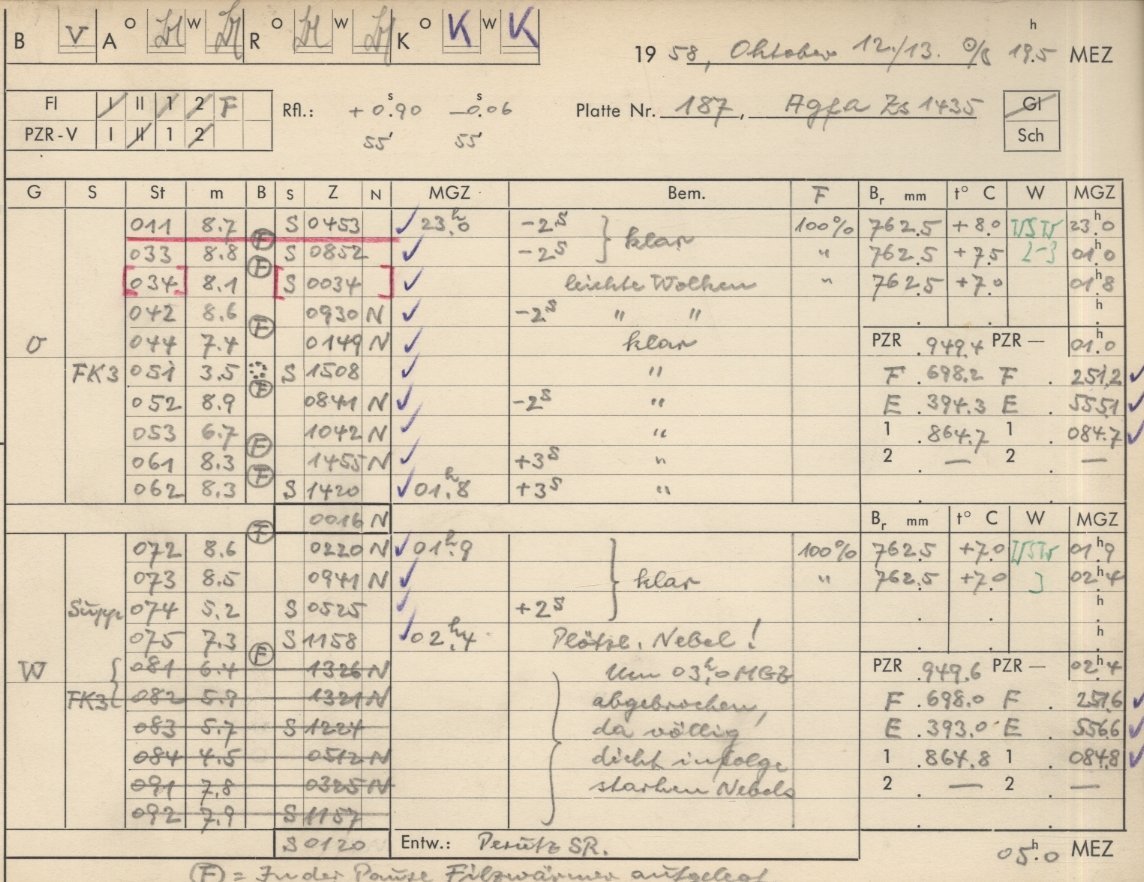 B V A O W R O W K O K W K
1958, Oktober 12./13. 19.5 h MEZ
Fl I II 1 2 F Rfl.: +0.90 s -0.06 s Platte Nr. 187, Agfa Zs 1435 Gl
PZR-V I II 1 2 55' 55' Sch
G S St m B S Z N MGZ Bem. F Br mm t° C W MGZ
011 8.7 S 0453 ✓ 23h.0 -2s } klar 100% 762.5 +8.0 23h.0
033 8.8 F S 0852 ✓ -2s " 762.5 +7.5 2-3 01h.0
[034] 8.1 F [S 0034] ✓ leichte Wolken " 762.5 +7.0 01h.8
042 8.6 0930 N ✓ -2s " " h
O 044 7.4 F 0149 N ✓ klar PZR .949.4 PZR — 01.0
FK3 051 3.5 S 1508 ✓ " F .698.2 F . 251.2 ✓
052 8.9 F 0841 N ✓ -2s " E .394.3 E . 555.1 ✓
053 6.7 1042 N ✓ " 1 .864.7 1 . 084.7 ✓
061 8.3 F 1455 N ✓ +3s " 2 — 2 . —
062 8.3 F S 1420 ✓ 01h.8 +3s "
F 0016 N Br mm t° C W MGZ
072 8.6 0220 N ✓ 01h.9 } klar 100% 762.5 +7.0 01h.9
073 8.5 0941 N ✓ " 762.5 +7.0 3 02h.4
Suppl 074 5.2 S 0525 ✓ +2s h
075 7.3 S 1158 ✓ 02h.4 Plötzl. Nebel! h
W { 081 6.4 F 1326 N Um 03h.0 MGZ PZR .949.6 PZR — 02h.4
FK3 082 5.9 1321 N abgebrochen, F .698.0 F . 251.6 ✓
083 5.7 S 1224 da völlig E .393.0 E . 556.6 ✓
084 4.5 0512 N dicht infolge 1 .864.8 1 . 084.8 ✓
091 7.8 0325 N starken Nebels 2 — 2 . —
092 7.9 S 1157
S 0120 Entw.: Perutz SR. 05h.0 MEZ
(F) = In der Pause Filzwärmer aufgelegt